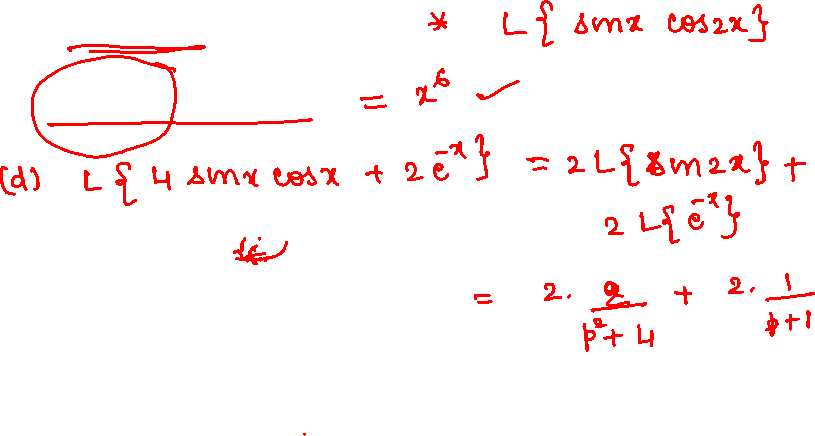 * L{ sinx cos2x}
= x⁶ ✓
(d) L{ 4 sinx cosx + 2 e⁻ˣ} = 2 L{ sin2x} +
2 L{ e⁻ˣ}
= 2. 2/(p²+4) + 2. 1/(p+1)